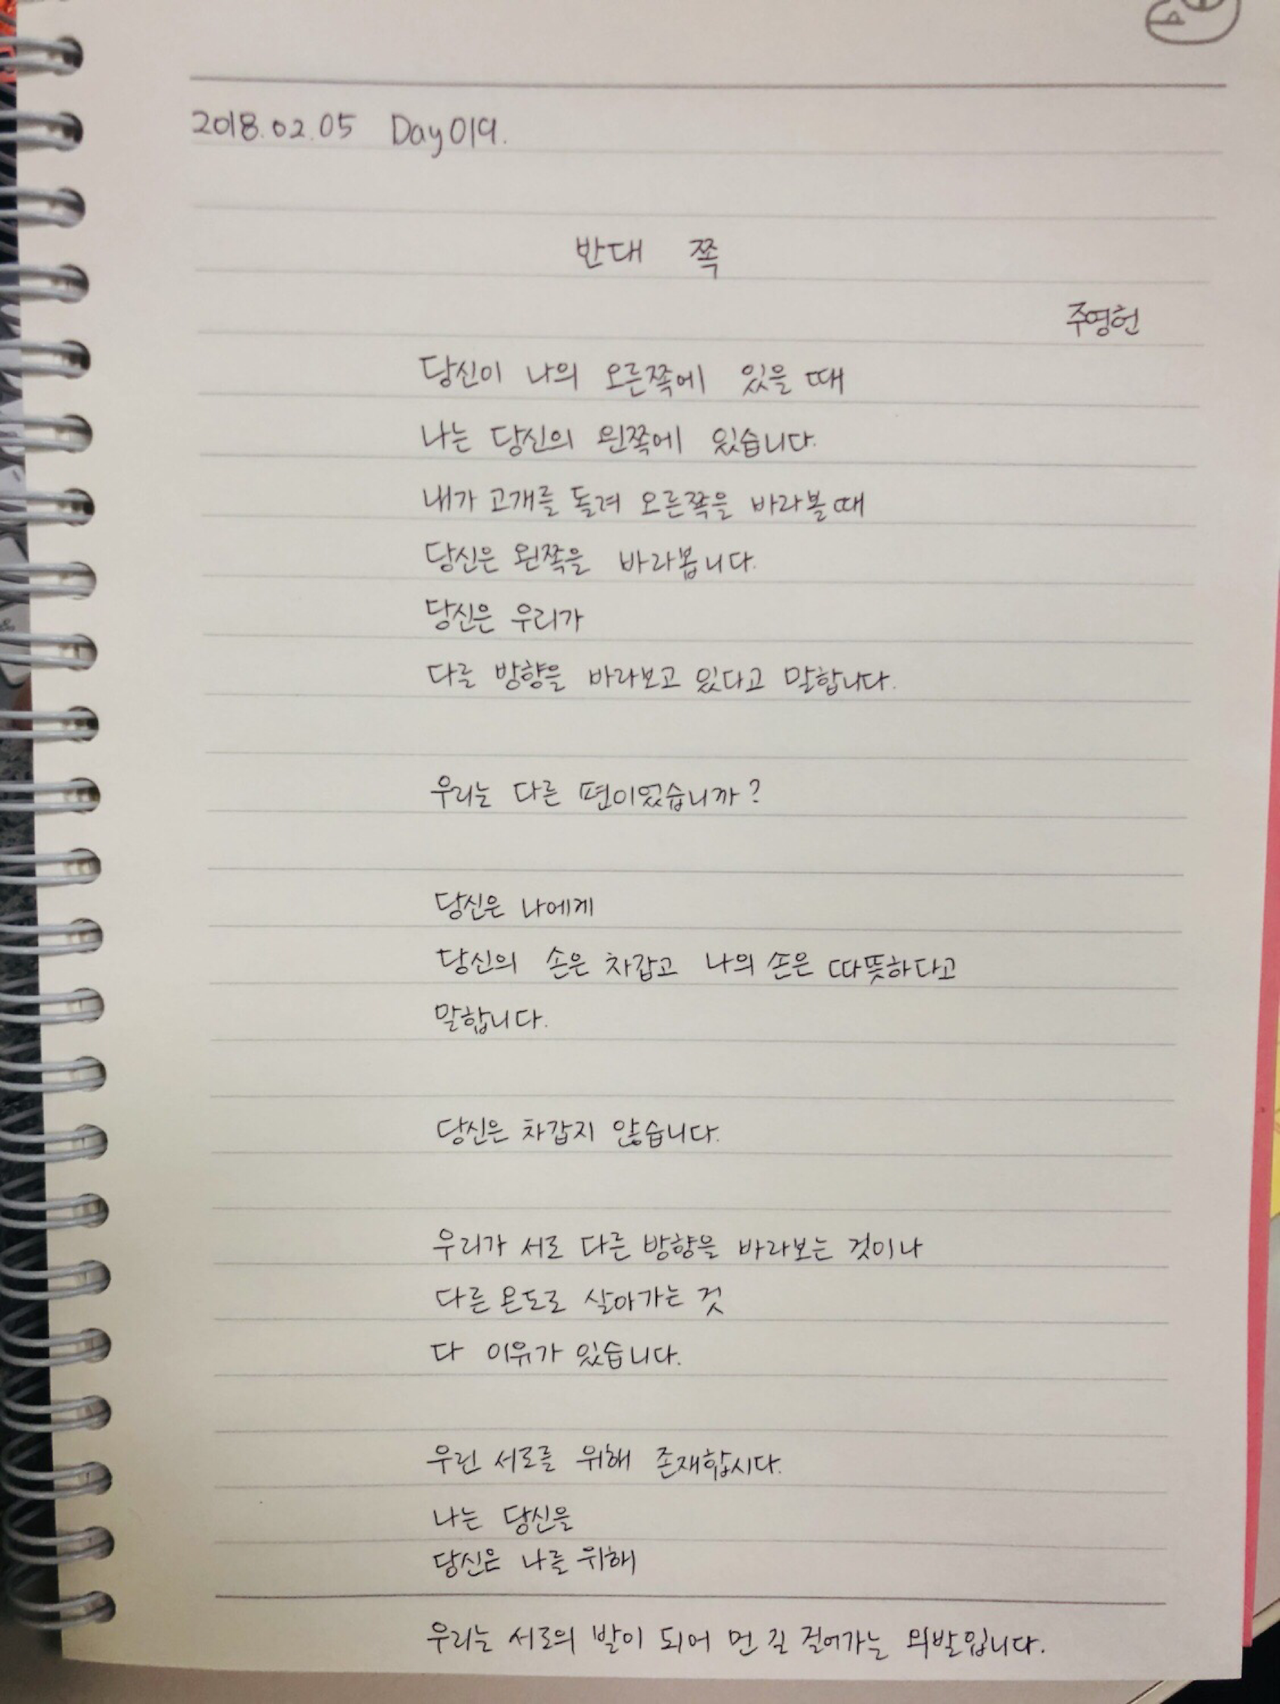 2018.02.05 Day019.
반대 쪽
주영헌
당신이 나의 오른쪽에 있을 때
나는 당신의 왼쪽에 있습니다.
내가 고개를 돌려 오른쪽을 바라볼 때
당신은 왼쪽을 바라봅니다.
당신은 우리가
다를 방향을 바라보고 있다고 말합니다.
우리는 다른 편이었습니까?
당신은 나에게
당신의 손은 차갑고 나의 손은 따뜻하다고
말합니다.
당신은 차갑지 않습니다.
우리가 서로 다른 방향을 바라보는 것이나
다른 온도로 살아가는 것
다 이유가 있습니다.
우린 서로를 위해 존재합시다.
나는 당신을
당신은 나를 위해
우리는 서로의 발이 되어 먼 길 걸어가는 외발입니다.